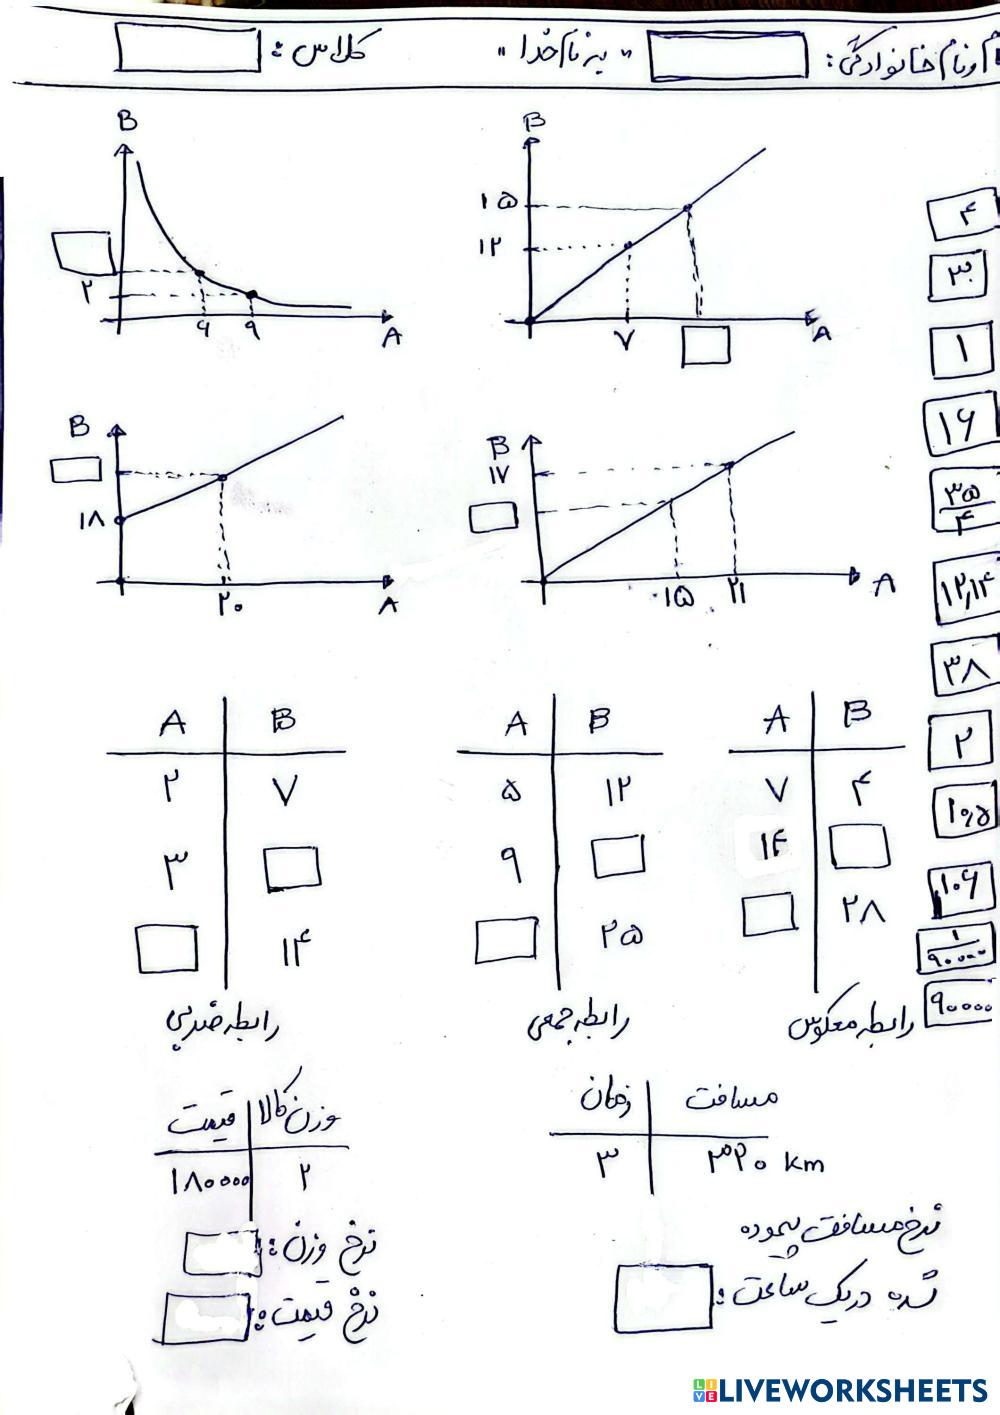 نام و نام خانوادگی: "به نام خدا" کلاس:
B
۲
۶ ۹ A
B
۱۵
۱۲
۷ A
۴
۳۰
۱
۱۶
۳۵/۴
۱۲,۱۴
۳۸
۲
۱۰,۵
۱۰۶
۱/۹۰۰۰۰
۹۰۰۰۰
B
۱۸
۲۰ A
B
۱۷
۱۵ ۲۱ A
A B
۲ ۷
۳
۱۴
رابطه ضربی
A B
۵ ۱۲
۹
۲۵
رابطه جمعی
A B
۷ ۴
۱۴
۲۸
رابطه معکوس
قیمت وزن کالا
۱۸۰۰۰۰ ۲
نرخ وزن:
نرخ قیمت:
زمان مسافت
۳ km
نرخ مسافت پیموده
شده در یک ساعت:
LIVEWORKSHEETS